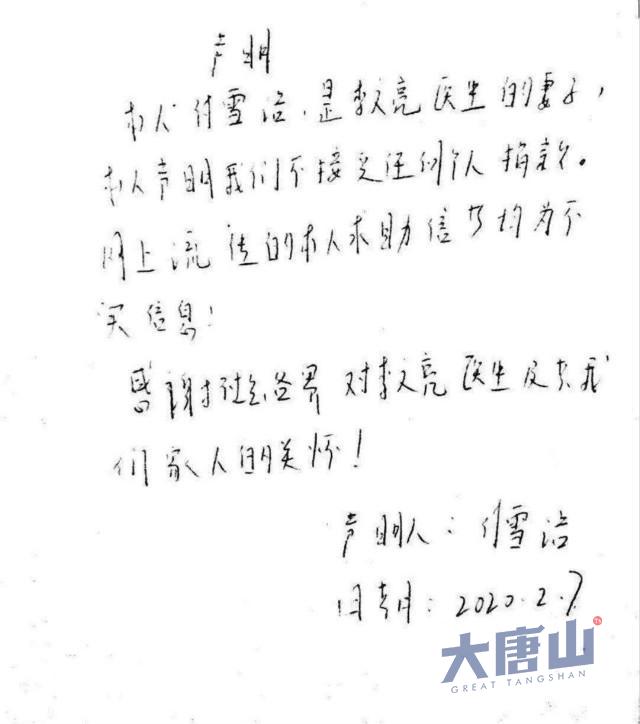 声明
本人付雪洁,是李文亮医生的妻子,
本人声明我们不接受任何个人捐款。
网上流传的本人求助信息均为不
实信息!
感谢社会各界对李文亮医生及其我
们家人的关怀!
声明人:付雪洁
日期:2020.2.7
大唐山
GREAT TANGSHAN